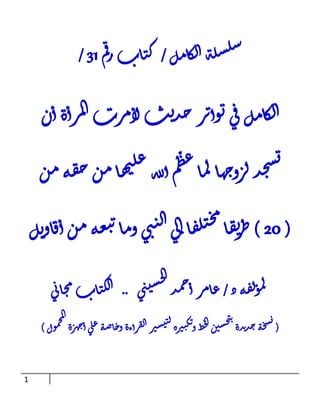 سلسلة الكامل / كتاب رقم 31 /
الكامل في تواتر حديث لأمرت المرأة أن
تسجد لزوجها لما عظَّم الله عليها من حقه من
( 20 ) طريقا مختلفا إلي النبي وما تبعه من أقاويل
لمؤلفه د / عامر أحمد الحسيني .. الكتاب مجاني
( نسخة جديدة بتحسين الخط وتكبيره لتيسير القراءة وخاصة علي أجهزة المحمول )
1